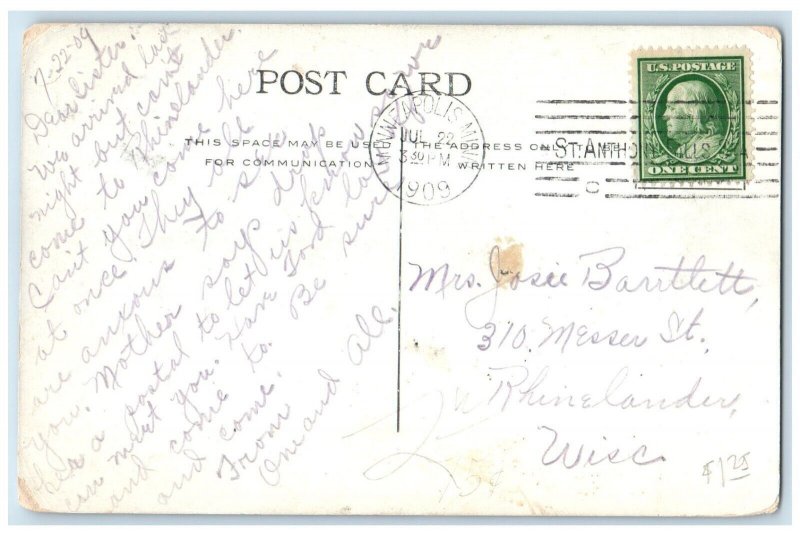 7-22-09
Dear sister:-
We arrived last
night but can't
come to Rhinelander.
Can't you come here
at once. They all
are anxous to see
you. Mother says drop
her a postal to let us know
can meet you. Have Ford
and come to.
and come. Be sure
From
One and All.
POST CARD
THIS SPACE MAY BE USED
FOR COMMUNICATION
THE ADDRESS ONLY
WRITTEN HERE
MINNEAPOLIS, MINN.
JUL 22
3 30 PM
1909
ST. ANTHONY FALLS
U.S. POSTAGE
ONE CENT
Mrs. Josie Barrtlett,
310. Messer St.
Rhinelander,
Wisc.
$1 25